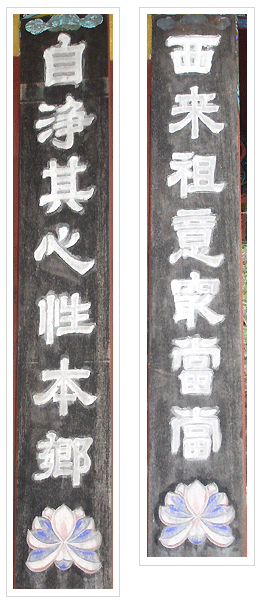 西来祖意最當當
自淨其心性本鄉